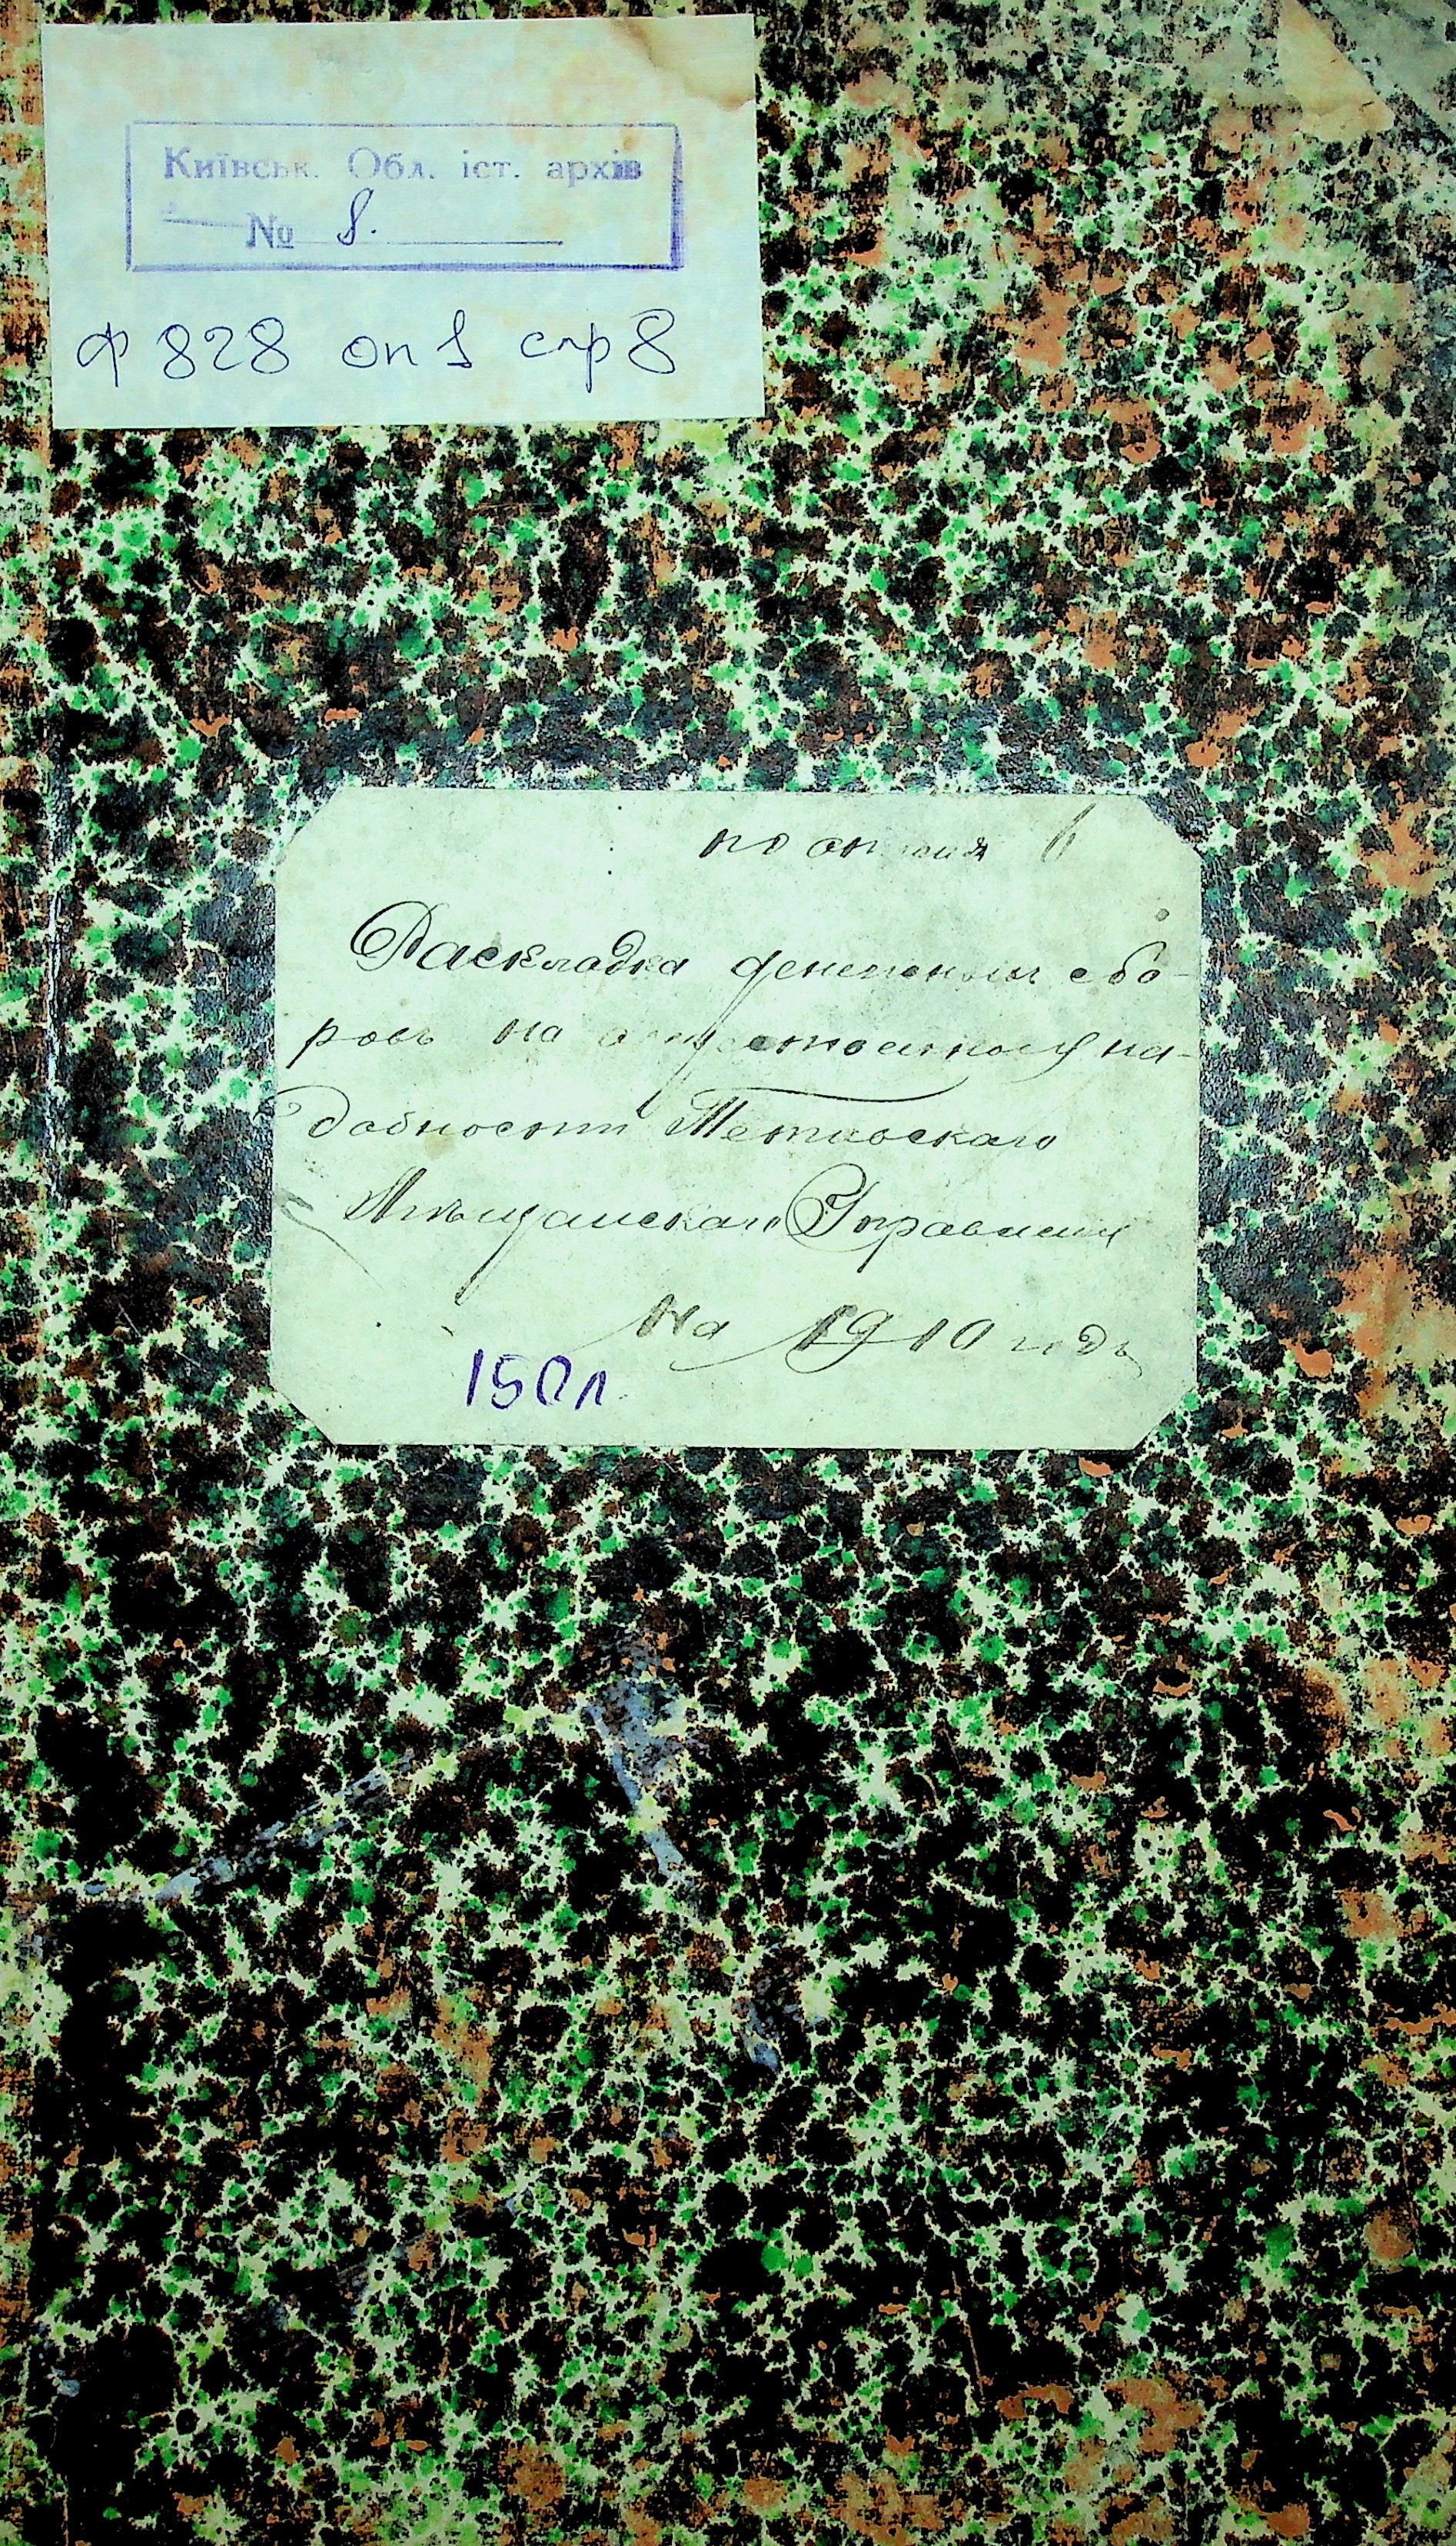 Київськ. Обл. іст. архів
№ 8.
ф 828 оп 1 спр 8
по описи 6
Раскладка денежныхъ сбо-
ровъ на общественныя на-
добности Тетіевскаго
Мѣщанскаго Управленія
На 1910 годъ
150л.